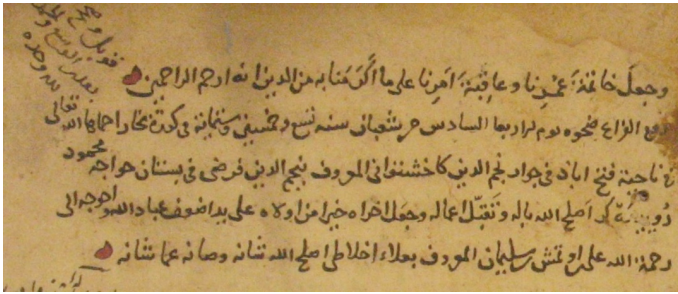 فقوبل
بقدر الوسع
لله وحده
وجعل خاتمة عمرنا وعاقبة امرنا على ما اكرمنا به من الدين انه ارحم الراحمين
وقع الفراغ ضحوه يوم الاربعا السادس من شعبان سنه تسع وخمسين وستمائة في كورة بخارا حماها الله تعالى
في ناحية فتح اباذ في جوار نجم الدين كاخشتنواني المعروف بنجم الدين فرضى في بستان خواجه محمود
اصلح الله باله وتقبل اعماله وجعل اخراه خيرا من اولاه على يد اضعف عباد الله واحوجه الى
رحمة الله على بن سليمان المعروف بعلاء اخلاطى اصلح الله شانه وصانه عما شانه